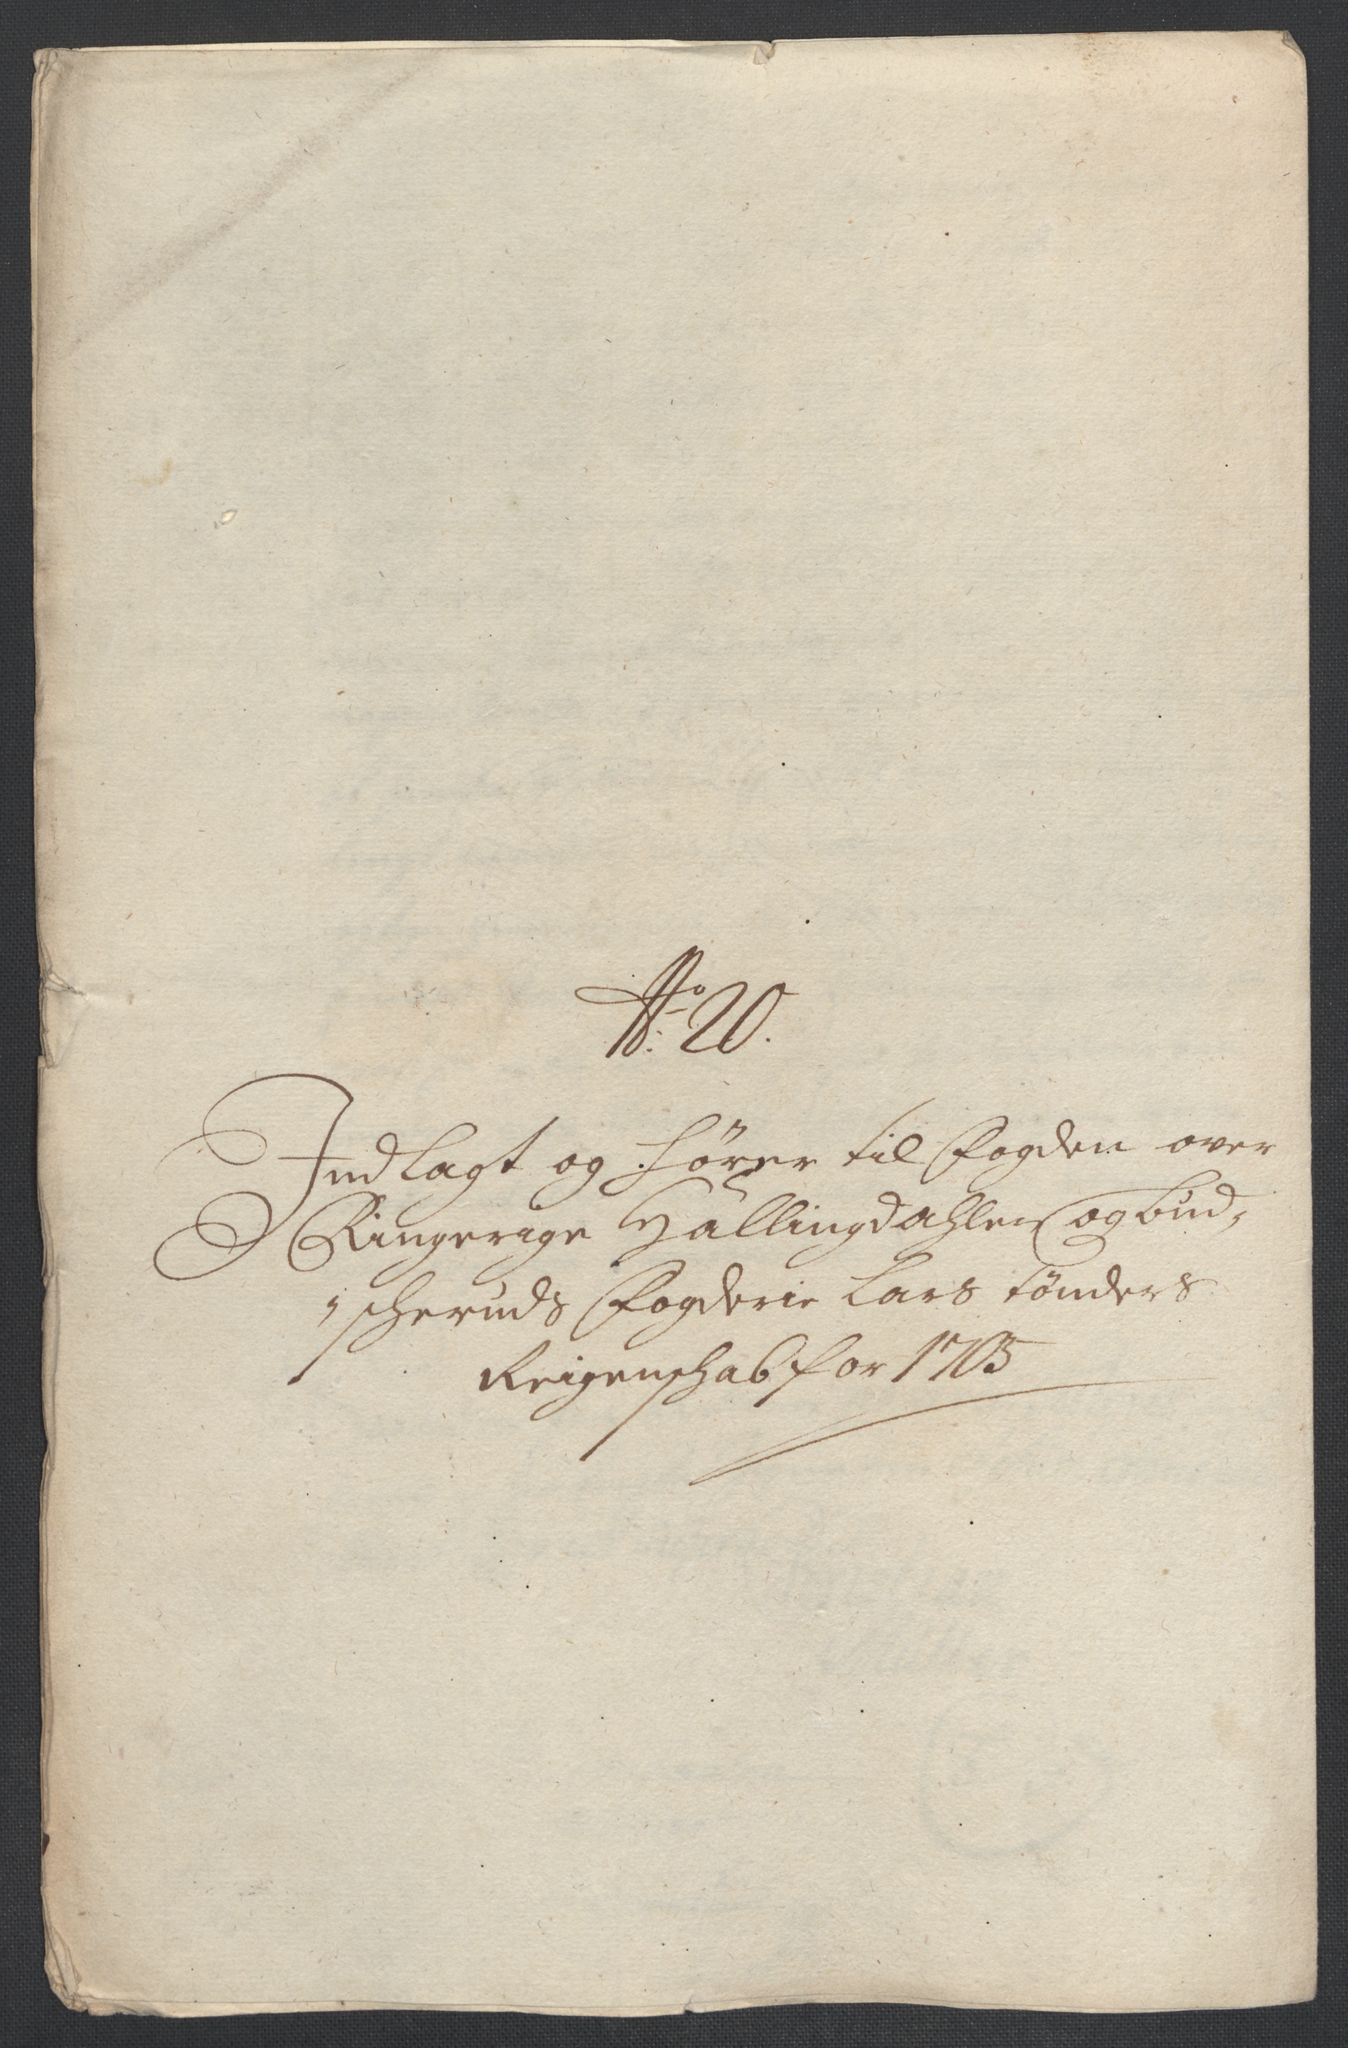 No: 20.
Indlagt og hører til Fogden over
Ringerige Hallingdahlen og bud,
scheruds Fogderie Lars tønders
Reigenschab for 1705